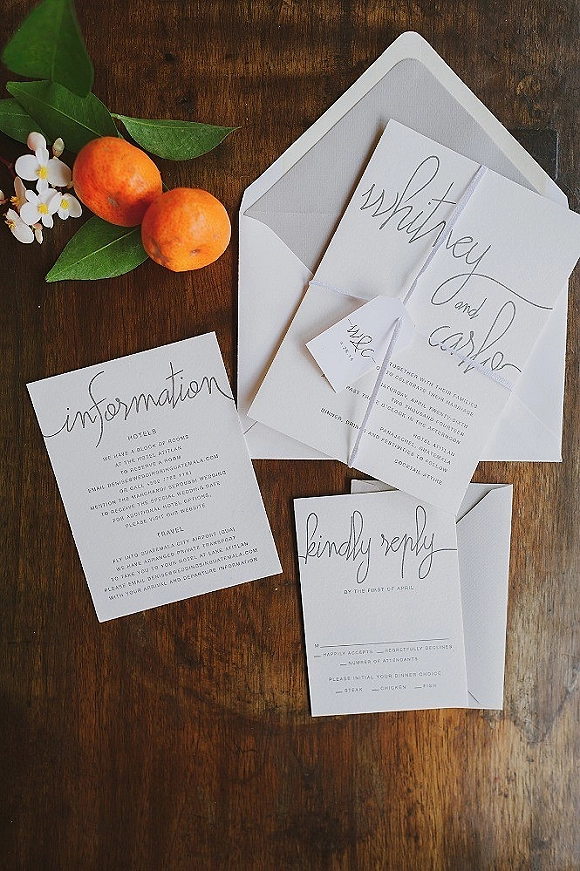 whitney
and
carlo
w&c
TOGETHER WITH THEIR FAMILIES
TO CELEBRATE THEIR MARRIAGE
SATURDAY, APRIL TWENTY-SIXTH
TWO THOUSAND FOURTEEN
PAST THE O'CLOCK IN THE AFTERNOON
HOTEL ATITLAN
PANAJACHEL, GUATEMALA
DINNER, DRINKS AND FESTIVITIES TO FOLLOW
COCKTAIL ATTIRE
information
HOTELS
WE HAVE A BLOCK OF ROOMS
AT THE HOTEL ATITLAN
TO RESERVE A ROOM
EMAIL
OR CALL
MENTION THE WEDDING
TO RECEIVE THE SPECIAL WEDDING RATE
FOR ADDITIONAL HOTEL OPTIONS,
PLEASE VISIT OUR WEBSITE
TRAVEL
FLY INTO GUATEMALA CITY AIRPORT (GUA)
WE HAVE ARRANGED PRIVATE TRANSPORT
TO TAKE YOU TO YOUR HOTEL AT LAKE ATITLAN
PLEASE EMAIL
WITH YOUR ARRIVAL AND DEPARTURE INFORMATION
kindly reply
BY THE FIRST OF APRIL
M
HAPPILY ACCEPTS REGRETFULLY DECLINES
NUMBER OF ATTENDANTS
PLEASE INITIAL YOUR DINNER CHOICE
STEAK CHICKEN FISH